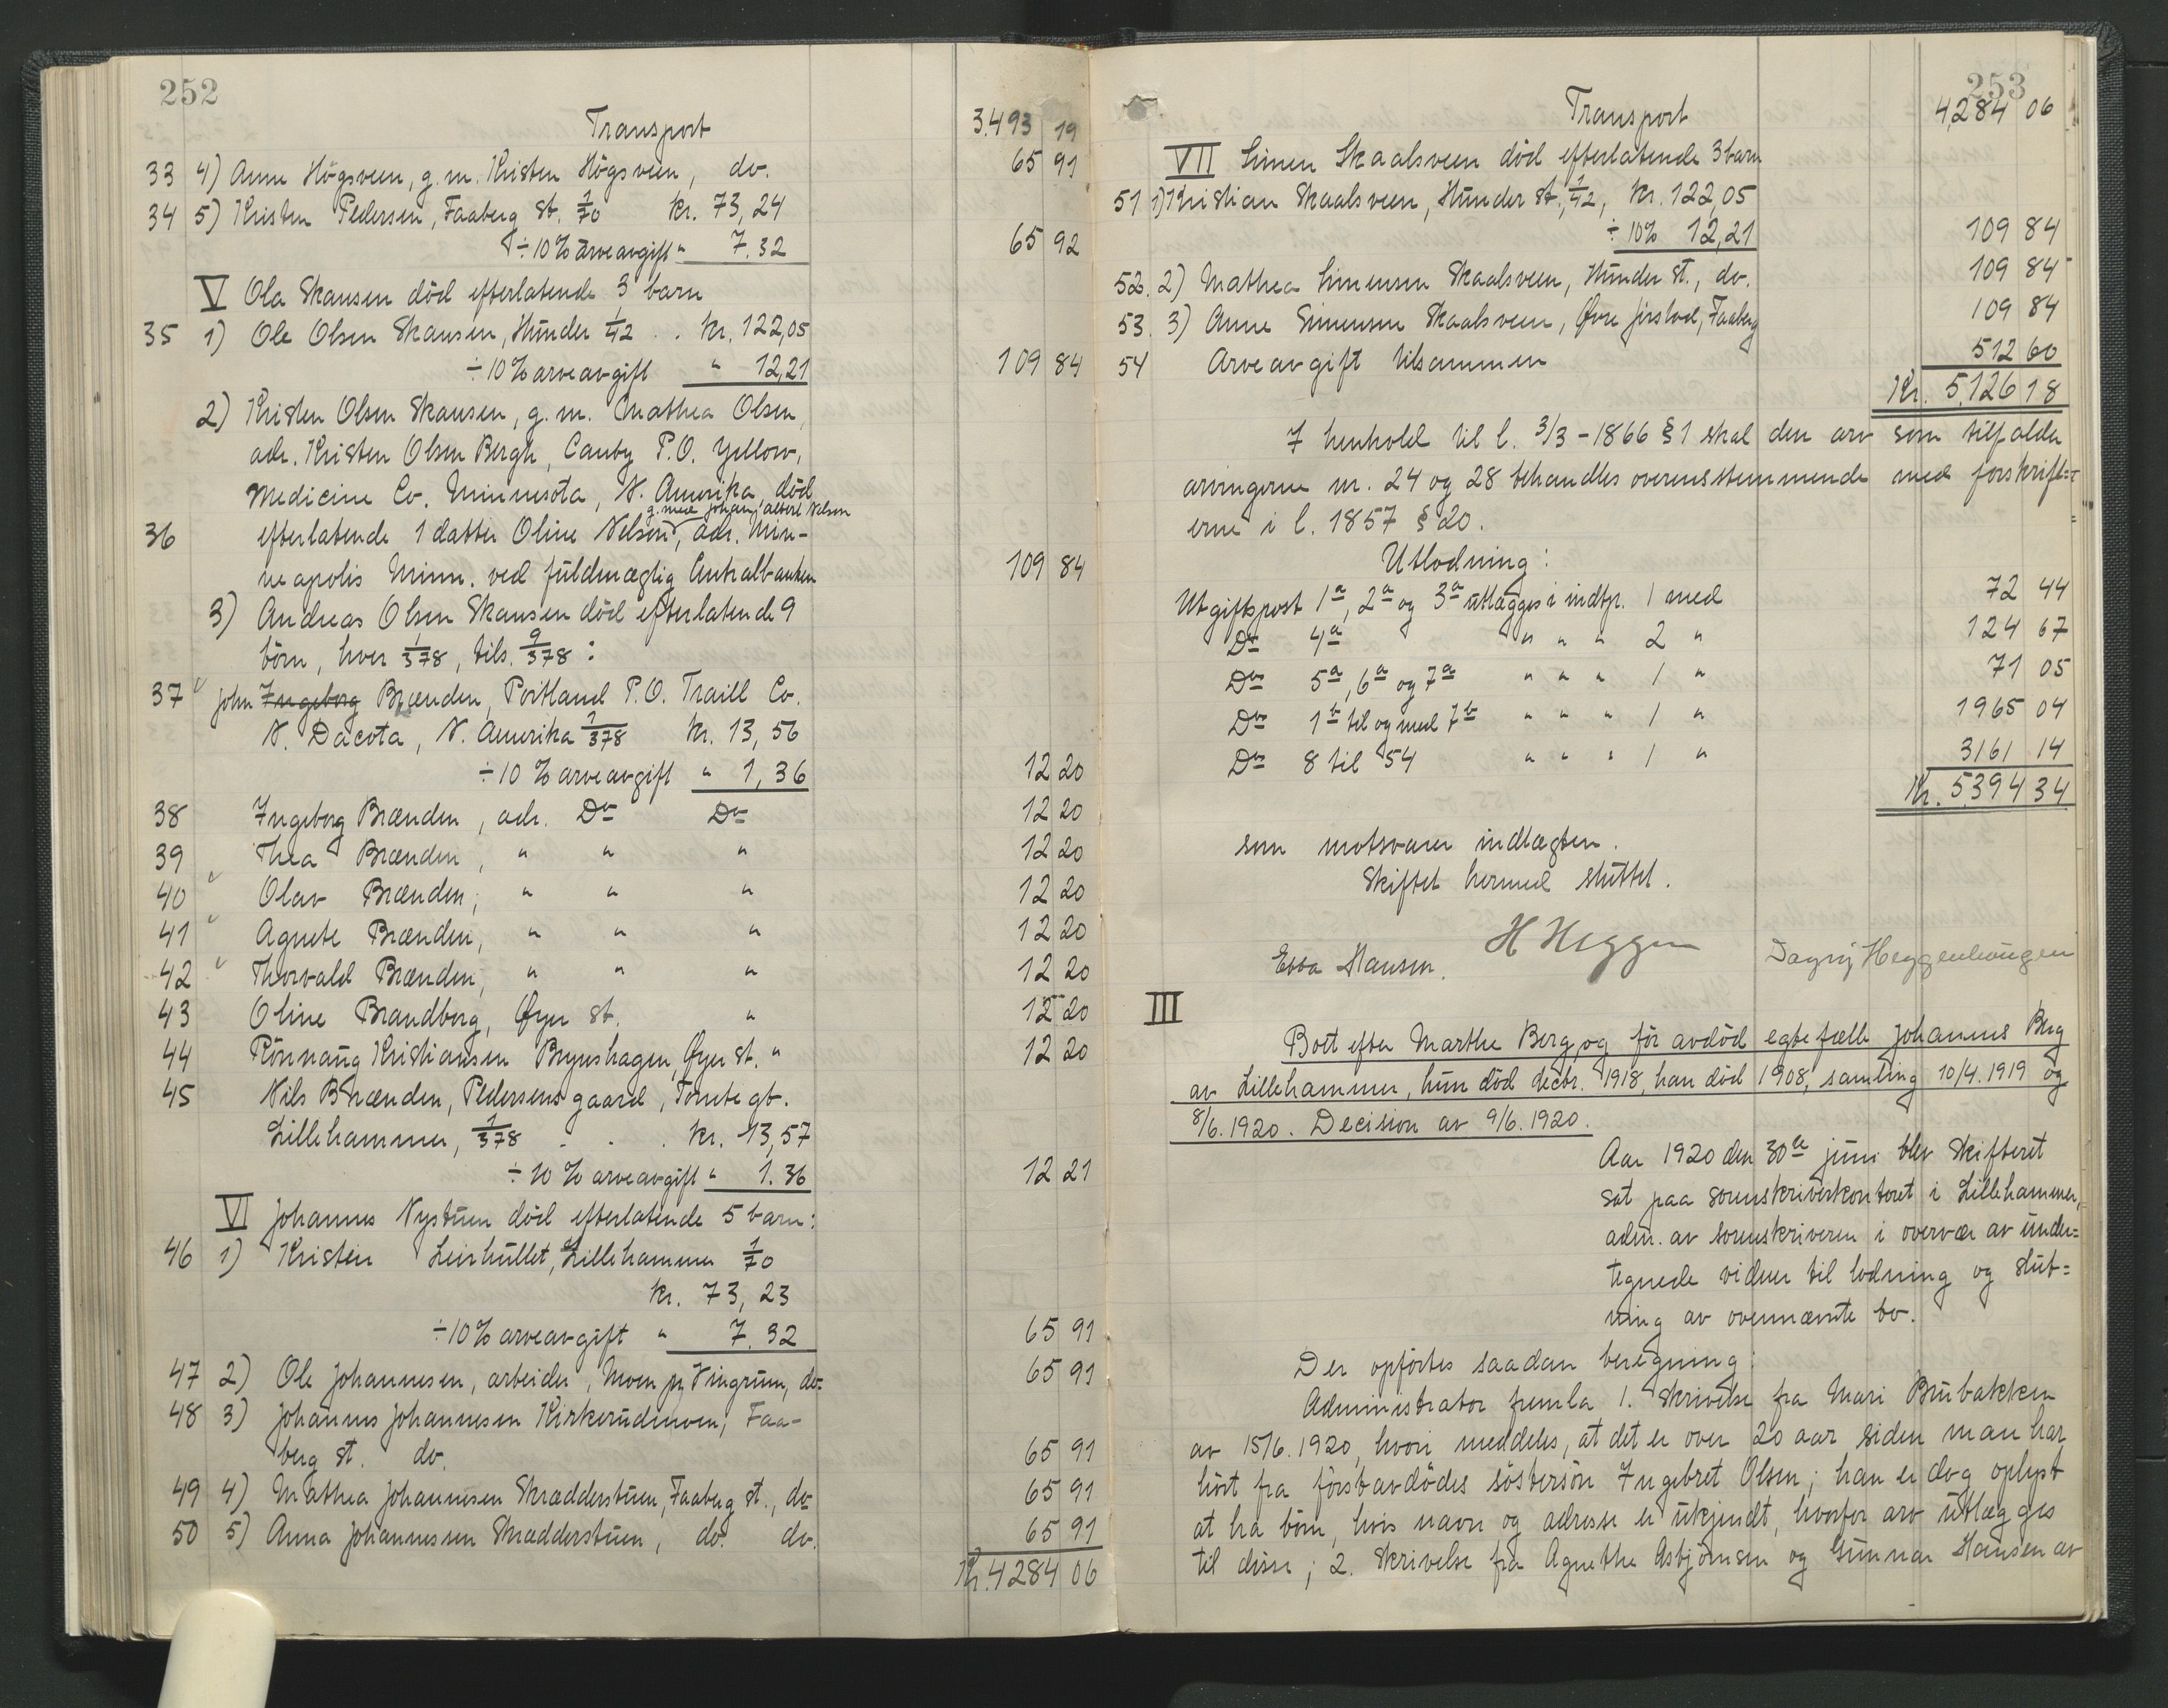 252
Transport 3.493 19
33 4) Anne Högsveen, g. m. Kristen Högsveen, do. 65 91
34 5) Kristen Pedersen, Faaberg st. 1/70 kr. 73,24
÷ 10 % arveavgift " 7.32 65 92
V Ola Skansen död efterlatende 3 barn
35 1) Ole Olsen Skansen, Hunder 1/42 . . kr. 122,05
÷ 10 % arveavgift " 12,21 109 84
2) Kristen Olsen Skansen, g. m. Mathea Olsen,
adr. Kristen Olsen Bergh, Canby P.O. Yellow,
Medicine Co. Minnesota, N. Amerika, död
g. med Johan Albert Nelson
36 efterlatende 1 datter Oline Nelson, adr. Min-
neapolis Minn. ved fuldmægtig Centralbanken 109 84
3) Andreas Olsen Skansen död efterlatende 9
börn, hver 1/378, tils. 9/378 :
37 John Ingeborg Brænden, Portland P.O. Traill Co.
N. Dacota, N. Amerika 1/378 kr. 13,56
÷ 10 % arveavgift " 1,36 12 20
38 Ingeborg Brænden, adr. Do Do 12 20
39 Thea Brænden, " " " 12 20
40 Olav Brænden, " " " 12 20
41 Agnete Brænden, " " " 12 20
42 Thorvald Brænden, " " " 12 20
43 Oline Brandborg, Øyer st. " 12 20
44 Rönnaug Kristiansen Brynshagen, Øyer st. " 12 20
45 Nils Brænden, Pedersens gaard, Tomtegt.
Lillehammer, 1/378 - . . kr. 13,57
÷ 10 % arveavgift " 1.36 12 21
VI Johannes Nystuen död efterlatende 5 barn:
46 1) Kristen Leirhullet, Lillehammer 1/70
kr. 73,23
÷ 10 % arveavgift " 7.32 65 91
47 2) Ole Johannesen, arbeider, Moen pr Vingrum, do. 65 91
48 3) Johannes Johannesen Kirkerudmoen, Faa-
berg st. do. 65 91
49 4) Mathea Johannesen Skrædderstuen, Faaberg st., do 65 91
50 5) Anna Johannesen Skrædderstuen, do. do. 65 91
Kr. 4284 06
253
Transport 4,284 06
VII Simen Skaalsveen död efterlatende 3 barn
51 1) Kristian Skaalsveen, Hunder st., 1/42, kr. 122,05
÷ 10% 12,21 109 84
52. 2) Mathea Simensen Skaalsveen, Hunder st., do. 109 84
53. 3) Anne Simensen Skaalsveen, Øvre Jirstad, Faaberg 109 84
54 Arveavgift tilsammen 512 60
Kr. 5.126 18
I henhold til l. 3/3-1866 § 1 skal den arv som tilfalder
arvingerne nr. 24 og 28 behandles overensstemmende med forskrift=
erne i l. 1857 § 20.
Utlodning:
Utgiftspost 1a, 2a og 3a utlægges i indtpr. 1 med 72 44
Do 4a " " " 2 " 124 67
Do 5a, 6a og 7a " " " 1 " 71 05
Do 1b til og med 7b " " " 1 " 1965 04
Do 8 til 54 " " " 1 " 3161 14
Kr. 5394 34
som motsvarer indtægten.
Skiftet hermed sluttet.
H Heggen
Ebba Hansen. Dagny Heggenhougen
III
Boet efter Marthe Berg og för avdöd egtefælle Johannes Berg
av Lillehammer, hun död decbr. 1918, han död 1908, samling 10/4. 1919 og
8/6. 1920. Decision av 9/6. 1920.
Aar 1920 den 30te juni blev skifteret
sat paa sorenskriverkontoret i Lillehammer,
adm. av sorenskriveren i overvær av under=
tegnede vidner til lodning og slut=
ning av ovennævnte bo.
Der opförtes saadan beregning:
Administrator fremla 1. skrivelse fra Mari Brubakken
av 15/6. 1920, hvori meddeles, at det er over 20 aar siden man har
hört fra förstavdödes söstersön Ingebret Olsen; han er dog oplyst
at ha börn, hvis navn og adresse er ukjendt, hvorfor arv utlægges
til disse; 2. skrivelse fra Agnethe Asbjörnsen og Gunnar Hansen av